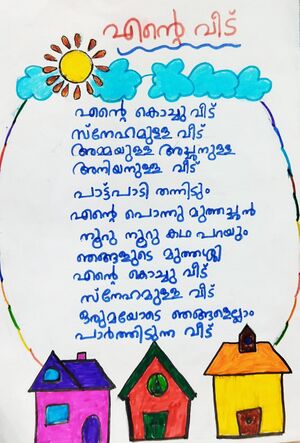 എന്റെ വീട്
എന്റെ കൊച്ചു വീട്
സ്നേഹമുള്ള വീട്
അമ്മയുള്ള അച്ഛനുള്ള
അനിയനുള്ള വീട്
പാട്ട്പാടി തന്നിടും
എന്റെ പൊന്നു മുത്തച്ഛൻ
നൂറു നൂറു കഥ പറയും
ഞങ്ങളുടെ മുത്തശ്ശി
എന്റെ കൊച്ചു വീട്
സ്നേഹമുള്ള വീട്
ഒരുമയോടെ ഞങ്ങളെല്ലാം
പാർത്തിടുന്ന വീട്